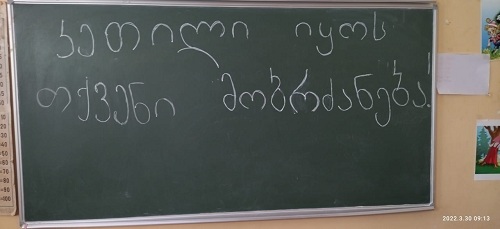 კეთილი იყოს
თქვენი მობრძანება!
2022.3.30 09:13